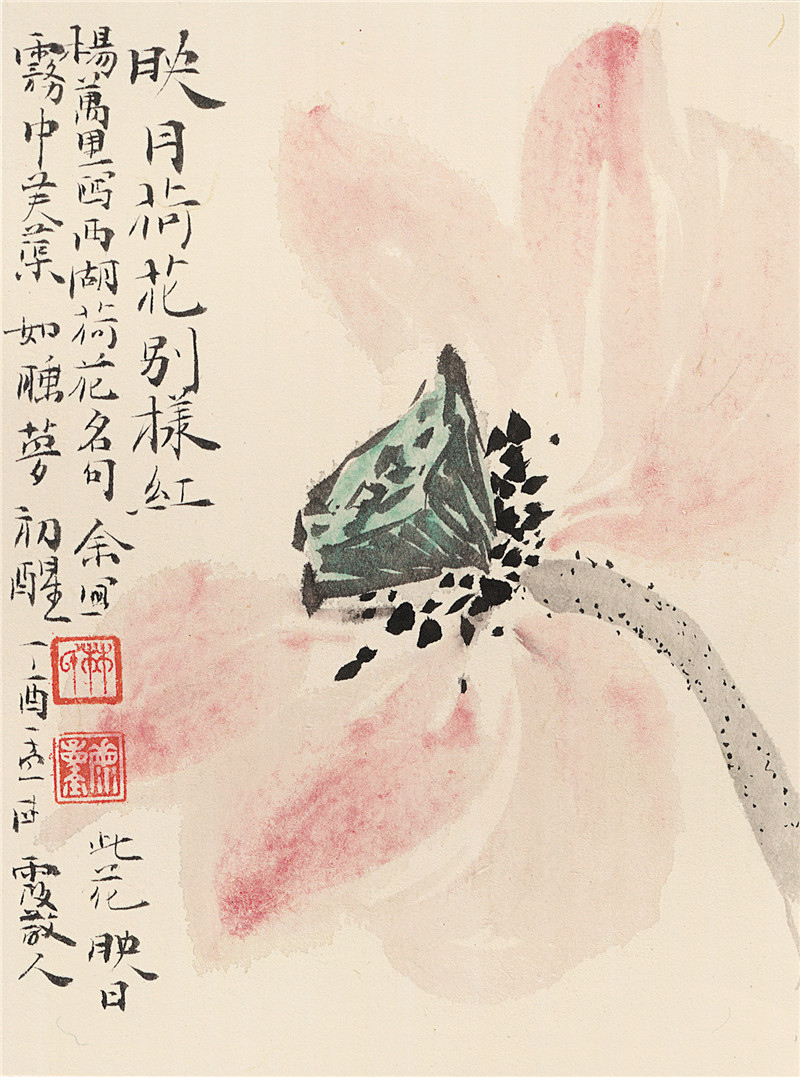 映月荷花别樣紅
楊萬里寫西湖荷花名句 余寫
霧中芙蕖 如睡夢初醒 丁酉 月 霞散人
此花映日